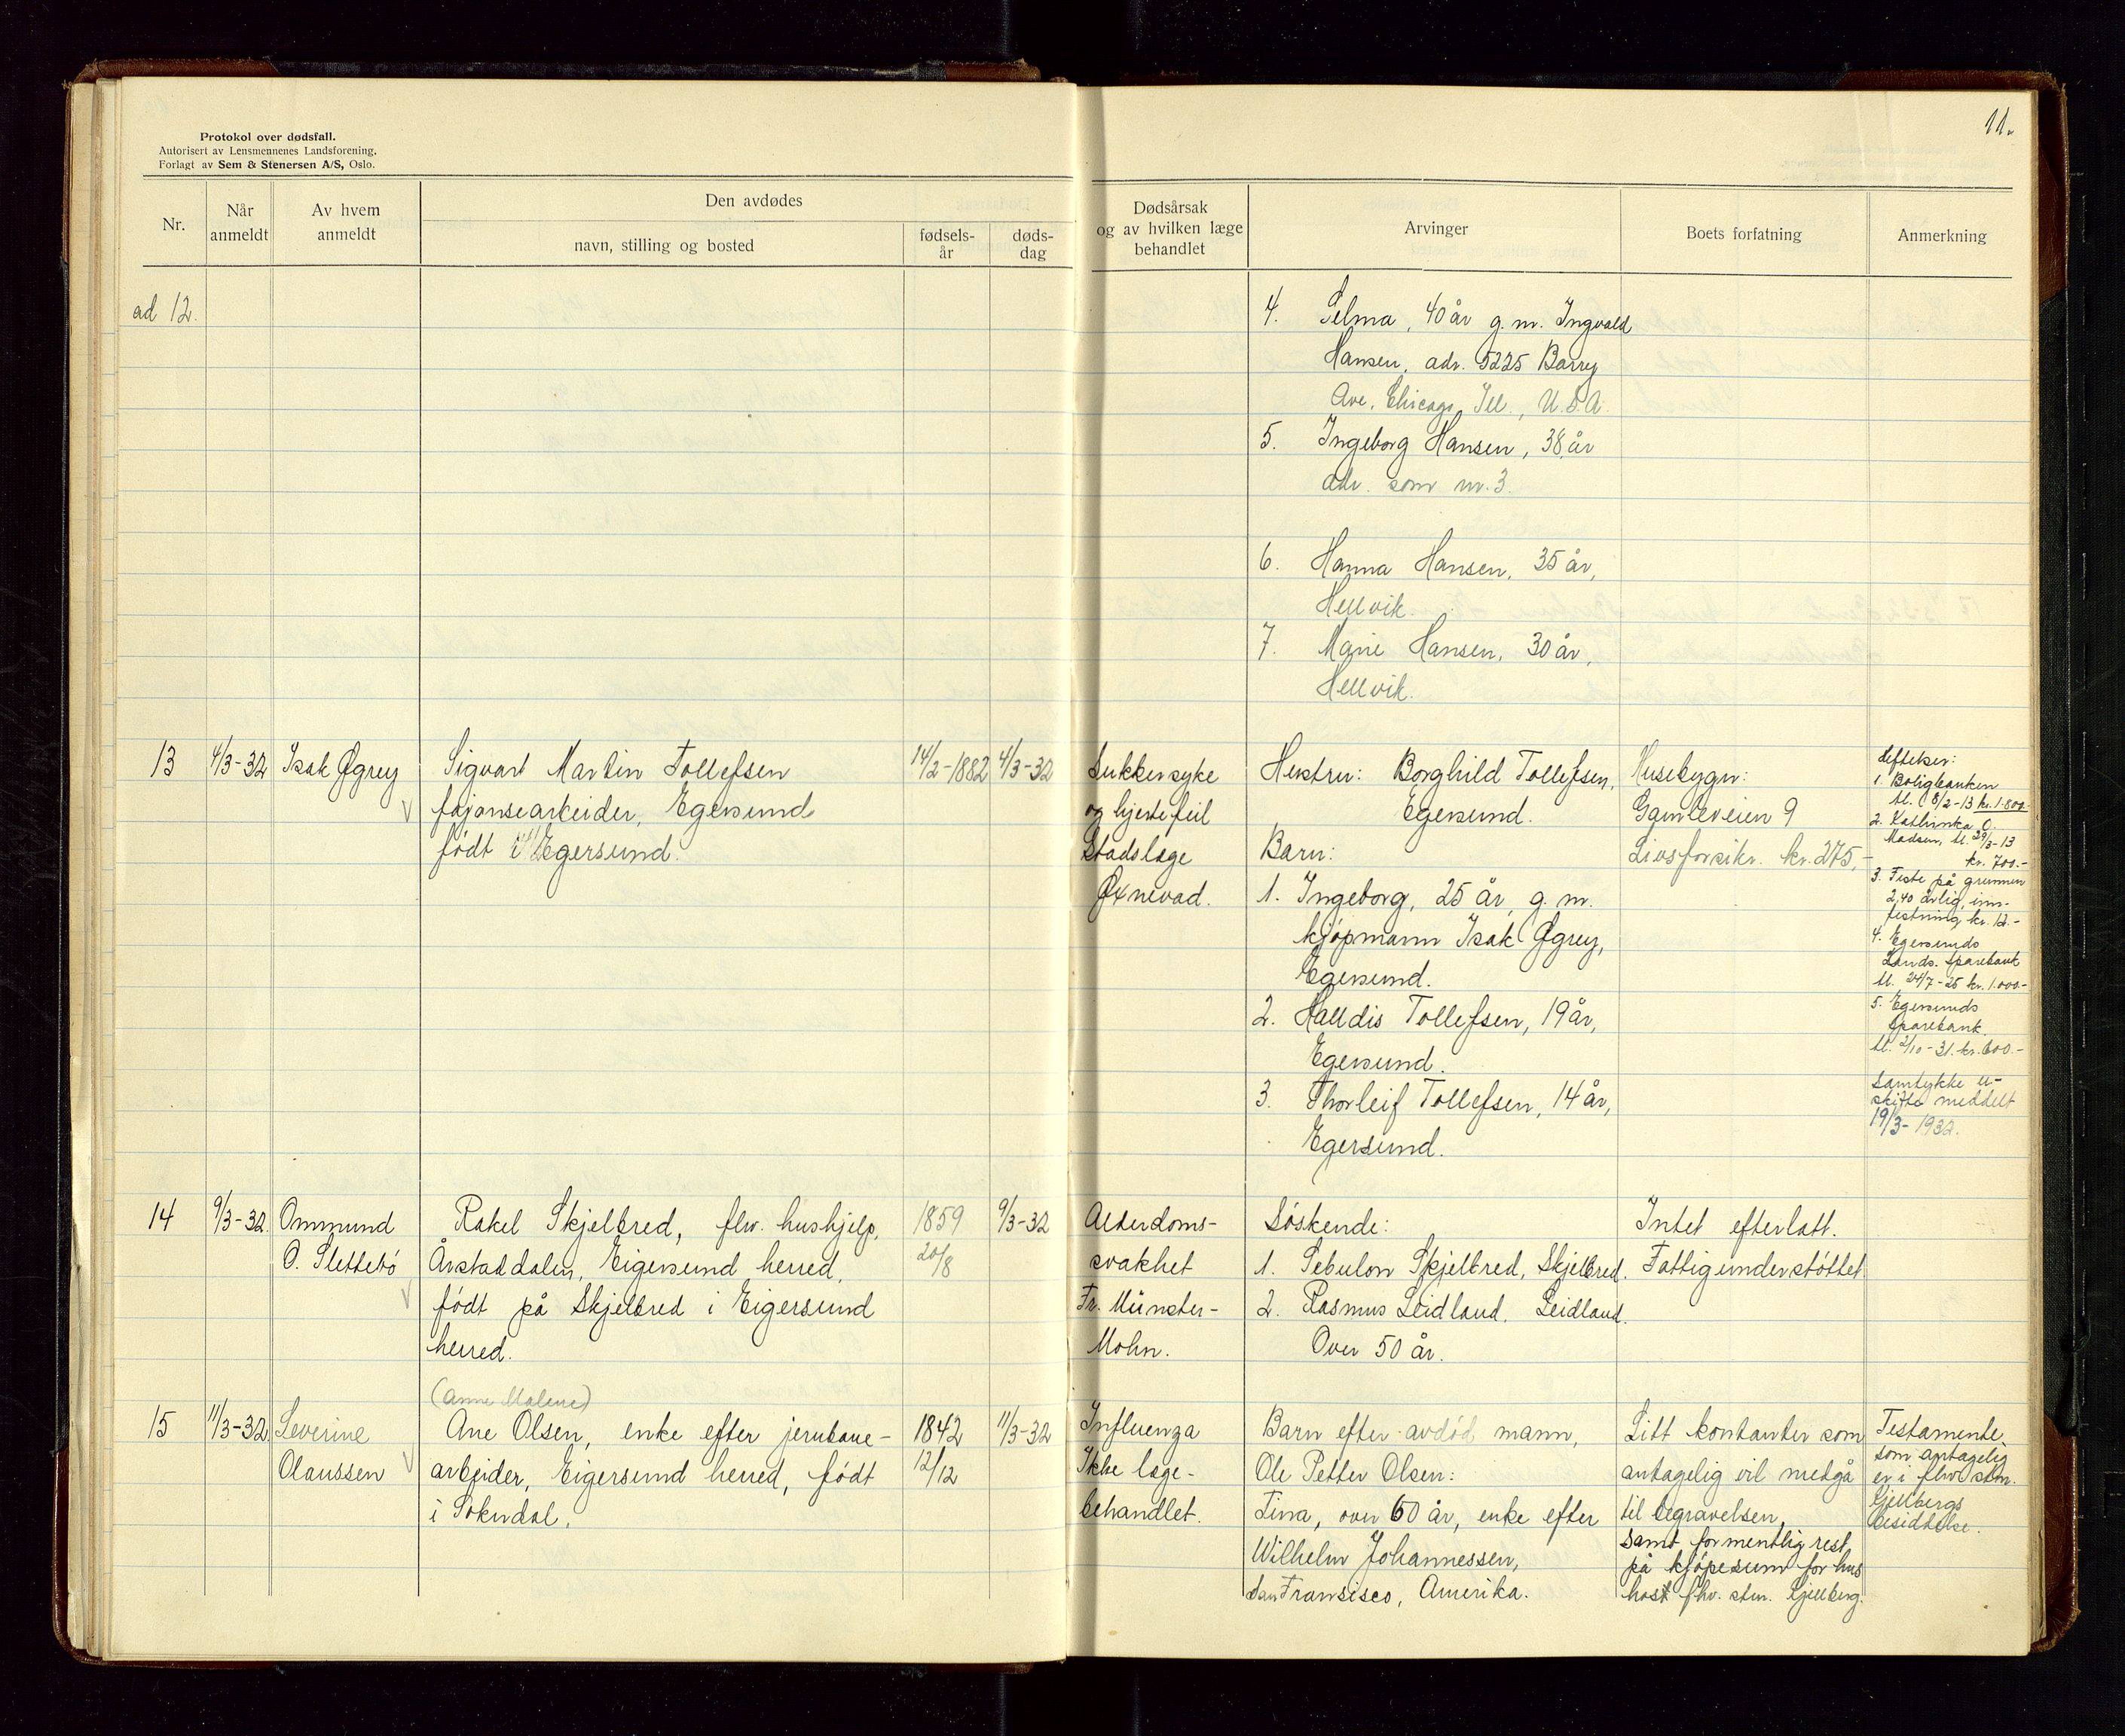 11.
Protokol over dødsfall.
Autorisert av Lensmennenes Landsforening.
Forlagt av Sem & Stenersen A/S, Oslo.
Nr.
Når
anmeldt
Av hvem
anmeldt
Den avdødes
navn, stilling og bosted
fødsels-
år
døds-
dag
Dødsårsak
og av hvilken læge
behandlet
Arvinger
Boets forfatning
Anmerkning
ad 12.
4. Selma, 40 år g. m. Ingvald
Hansen, adr. 5225 Barry
Ave, Chicago, Ill., U.S.A.
5. Ingeborg Hansen, 38 år
adr. som nr. 3.
6. Hanna Hansen, 35 år,
Hellvik.
7. Marie Hansen, 30 år,
Hellvik.
13
4/3-32
Isak Øgrey
Sigvart Martin Tollefsen
fajansearbeider, Egersund
født i Egersund.
14/2-1882
4/3-32
Sukkersyke
og hjertefeil
Stadslæge
Øxnevad.
Hustru: Borghild Tollefsen,
Egersund.
Barn:
1. Ingeborg, 25 år, g. m.
kjøpmann Isak Øgrey,
Egersund.
2. Halldis Tollefsen, 19 år,
Egersund.
3. Thorleif Tollefsen, 14 år,
Egersund.
Husebygn:
Gamleveien 9
Livsforsikr. kr. 275,-
Heftelser:
1. Boligbanken
tl. 8/2-13 kr. 1.800.-
2. Kathinka O.
Madsen, tl. 29/3-13
kr. 700.-
3. Feste på grunnen
2,40 årlig, inn-
festning kr. 12.-
4. Egersunds
Lands. Sparebank
tl. 24/7-25 kr. 1.000.-
5. Egersunds
Sparebank.
tl. 2/10-31. kr. 600.-
Samtykke u-
skifte meddelt
19/3-1932.
14
9/3-32.
Ommund
O. Slettebö
Rakel Skjelbred, fhv. hushjelp,
Årstaddalen, Eigersund herred,
født på Skjelbred i Eigersund
herred.
1859
20/8
9/3-32
Alderdoms-
svakhet
Fr. Münster-
Mohn.
Söskende:
1. Sebulon Skjelbred, Skjelbred.
2. Rasmus Leidland, Leidland.
Over 50 år.
Intet efterlatt.
Fattigunderstöttet
15
11/3-32.
Severine
Olaussen
(Anne Malene)
Ane Olsen, enke efter jernbane-
arbeider, Eigersund herred, født
i Sokndal.
1842
12/12
11/3-32
Influenza
Ikke læge-
behandlet.
Barn efter avdöd mann,
Ole Petter Olsen:
Tina, over 60 år, enke efter
Wilhelm Johannessen,
San Fransisco, Amerika.
Litt kontanter som
antagelig vil medgå
til begravelsen,
samt formentlig rest
på kjöpesum for hus
hos fhv. stm. Kjellberg.
Testamente
som antagelig
er i fhv. stm.
Kjellbergs
besiddelse.